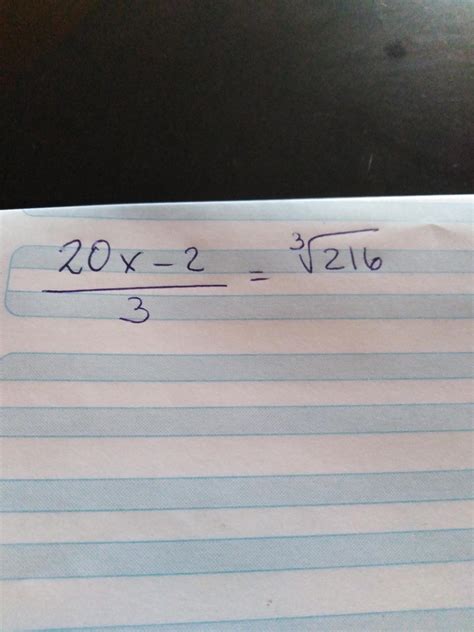 20x-2
3 = ³√216